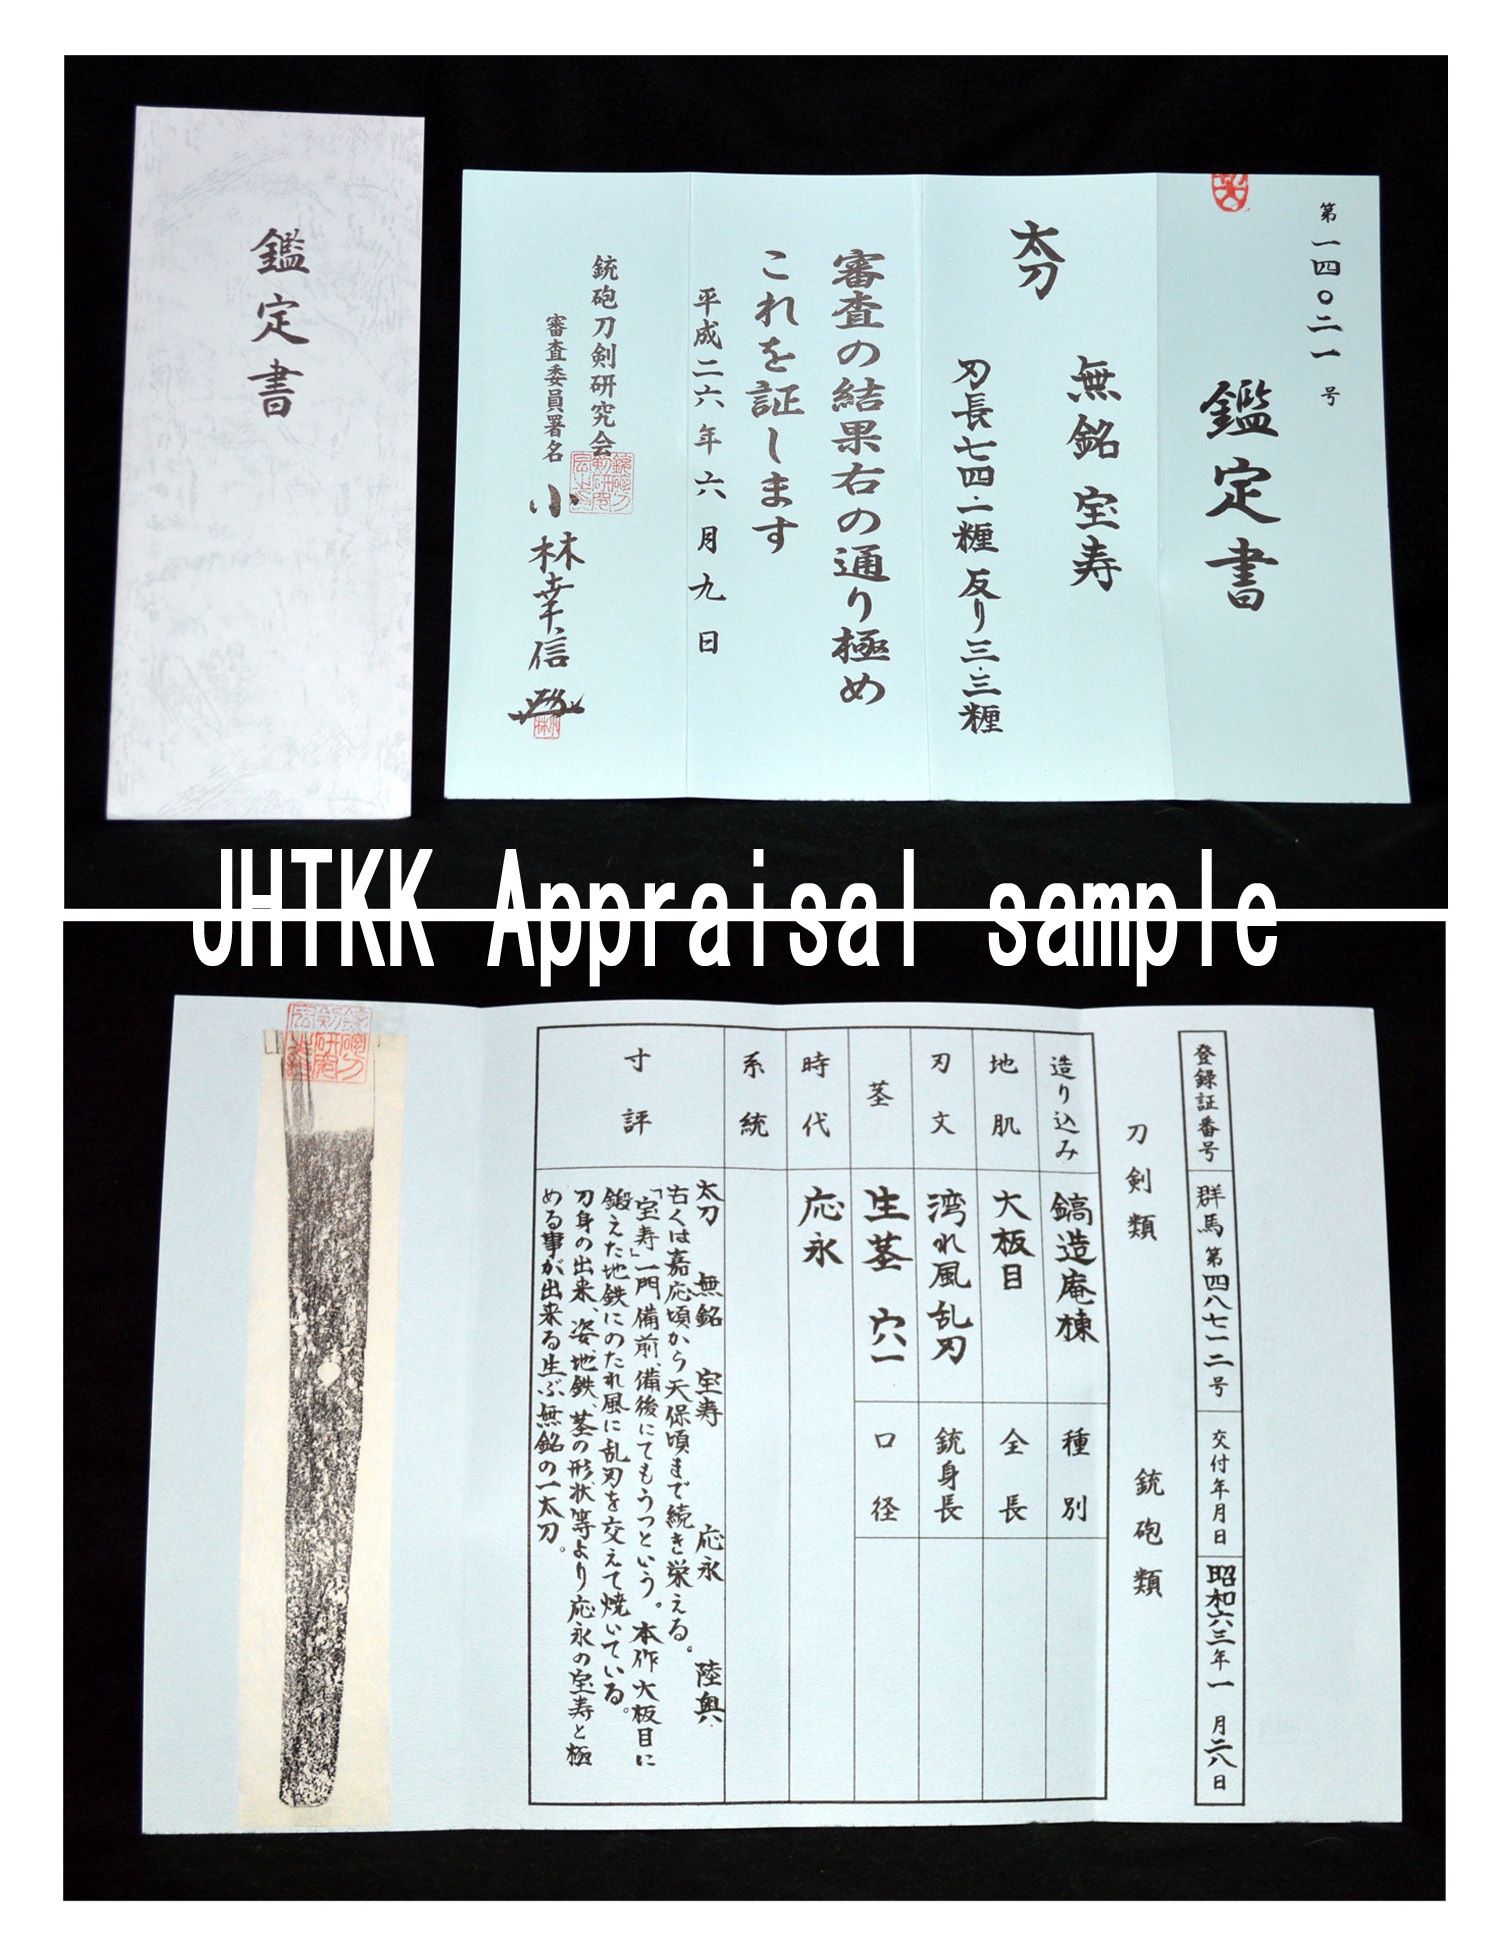 鑑定書
第一四〇二一号
鑑定書
太刀
無銘 宝寿
刃長七四・一糎 反り三・三糎
審査の結果右の通り極め
これを証します
平成二六年六月九日
銃砲刀剣研究会
審査委員署名 小林幸信
JHTKK Appraisal sample
登録証番号 群馬第四八七一二号 交付年月日 昭和六三年一月二八日
刀剣類 銃砲類
造り込み 鎬造庵棟 種別
地肌 大板目 全長
刃文 湾れ風乱刃 銃身長
茎 生茎 穴一 口径
時代 応永
系統
寸評
太刀 無銘 宝寿 応永 陸奥
古くは嘉応頃から天保頃まで続き栄える。
「宝寿」一門備前、備後にてもうつという。本作大板目に
鍛えた地鉄にのたれ風に乱刃を交えて焼いている。
刀身の出来、姿、地鉄、茎の形状等より応永の宝寿と極
める事が出来る生ぶ無銘の一太刀。